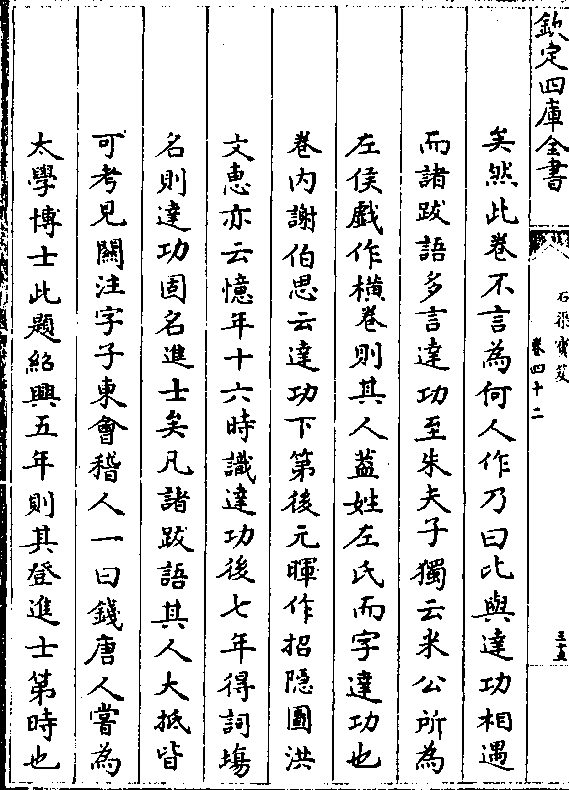 欽定四庫全書
石渠寳笈
卷四十二
三十五
矣然此卷不言為何人作乃曰比與達功相遇
而諸跋語多言達功至朱夫子獨云米公所為
左侯戲作橫卷則其人葢姓左氏而字達功也
卷内謝伯思云達功下第後元暉作招隠圖洪
文惠亦云憶年十六時識達功後七年得詞塲
名則達功固名進士矣凡諸跋語其人大抵皆
可考見關注字子東會稽人一曰錢唐人嘗為
太學博士此題紹興五年則其登進士第時也